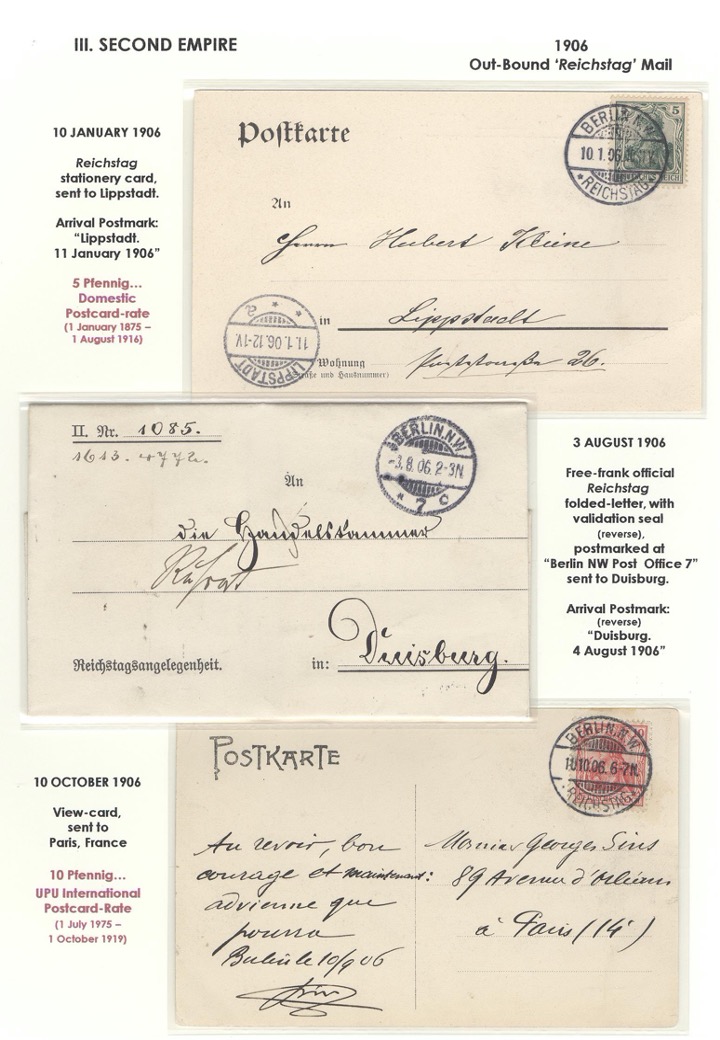 III. SECOND EMPIRE
1906
Out-Bound ‘Reichstag’ Mail
10 JANUARY 1906
Reichstag
stationery card,
sent to Lippstadt.
Arrival Postmark:
“Lippstadt.
11 January 1906”
5 Pfennig…
Domestic
Postcard-rate
(1 January 1875 –
1 August 1916)
Postkarte
5
BERLIN.N.W.
10.1.06.
* REICHSTAG *
An
Herrn Hubert Kleine
in Lippstadt
Wohnung 26.
(Straße und Hausnummer)
LIPPSTADT
11.1.06.12-1V.
* 2 *
II. Nr. 1085.
1613.
BERLIN.N.W
-3.8.06.2-3N
* 7 c
An
die Handelskammer
Ruhrort
Reichstagsangelegenheit.
in: Duisburg.
3 AUGUST 1906
Free-frank official
Reichstag
folded-letter, with
validation seal
(reverse),
postmarked at
“Berlin NW Post Office 7”
sent to Duisburg.
Arrival Postmark:
(reverse)
“Duisburg.
4 August 1906”
10 OCTOBER 1906
View-card,
sent to
Paris, France
10 Pfennig…
UPU International
Postcard-Rate
(1 July 1975 –
1 October 1919)
POSTKARTE
BERLIN.N.W.
10.10.06.6-7N.
* REICHSTAG *
Au revoir, bon
courage et maintenant:
advienne que
pourra
Berlin le 10/9 06
Monsieur Georges
89 Avenue d'Orléans
à Paris (14e)